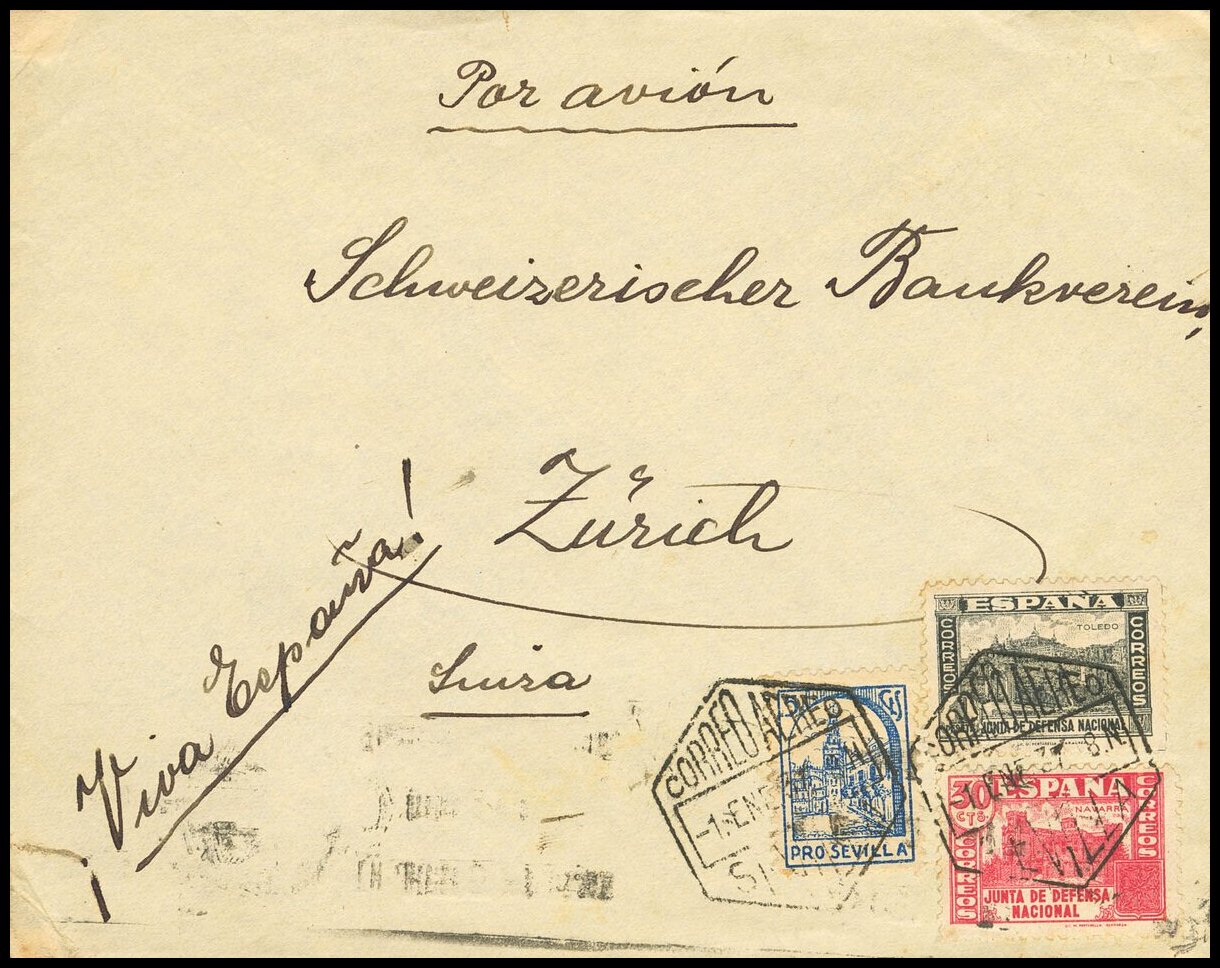 Por avión
Schweizerischer Bankverein,
Zürich
Suiza
¡Viva España!
ESPAÑA
TOLEDO
CORREOS
CORREOS
JUNTA DE DEFENSA NACIONAL
CORREO AEREO
-1. ENE 37 8.N
30 CTS
ESPAÑA
NAVARRA
CORREOS
CORREOS
JUNTA DE DEFENSA
NACIONAL
CORREO AEREO
-1. ENE
5 CTS
PRO SEVILLA